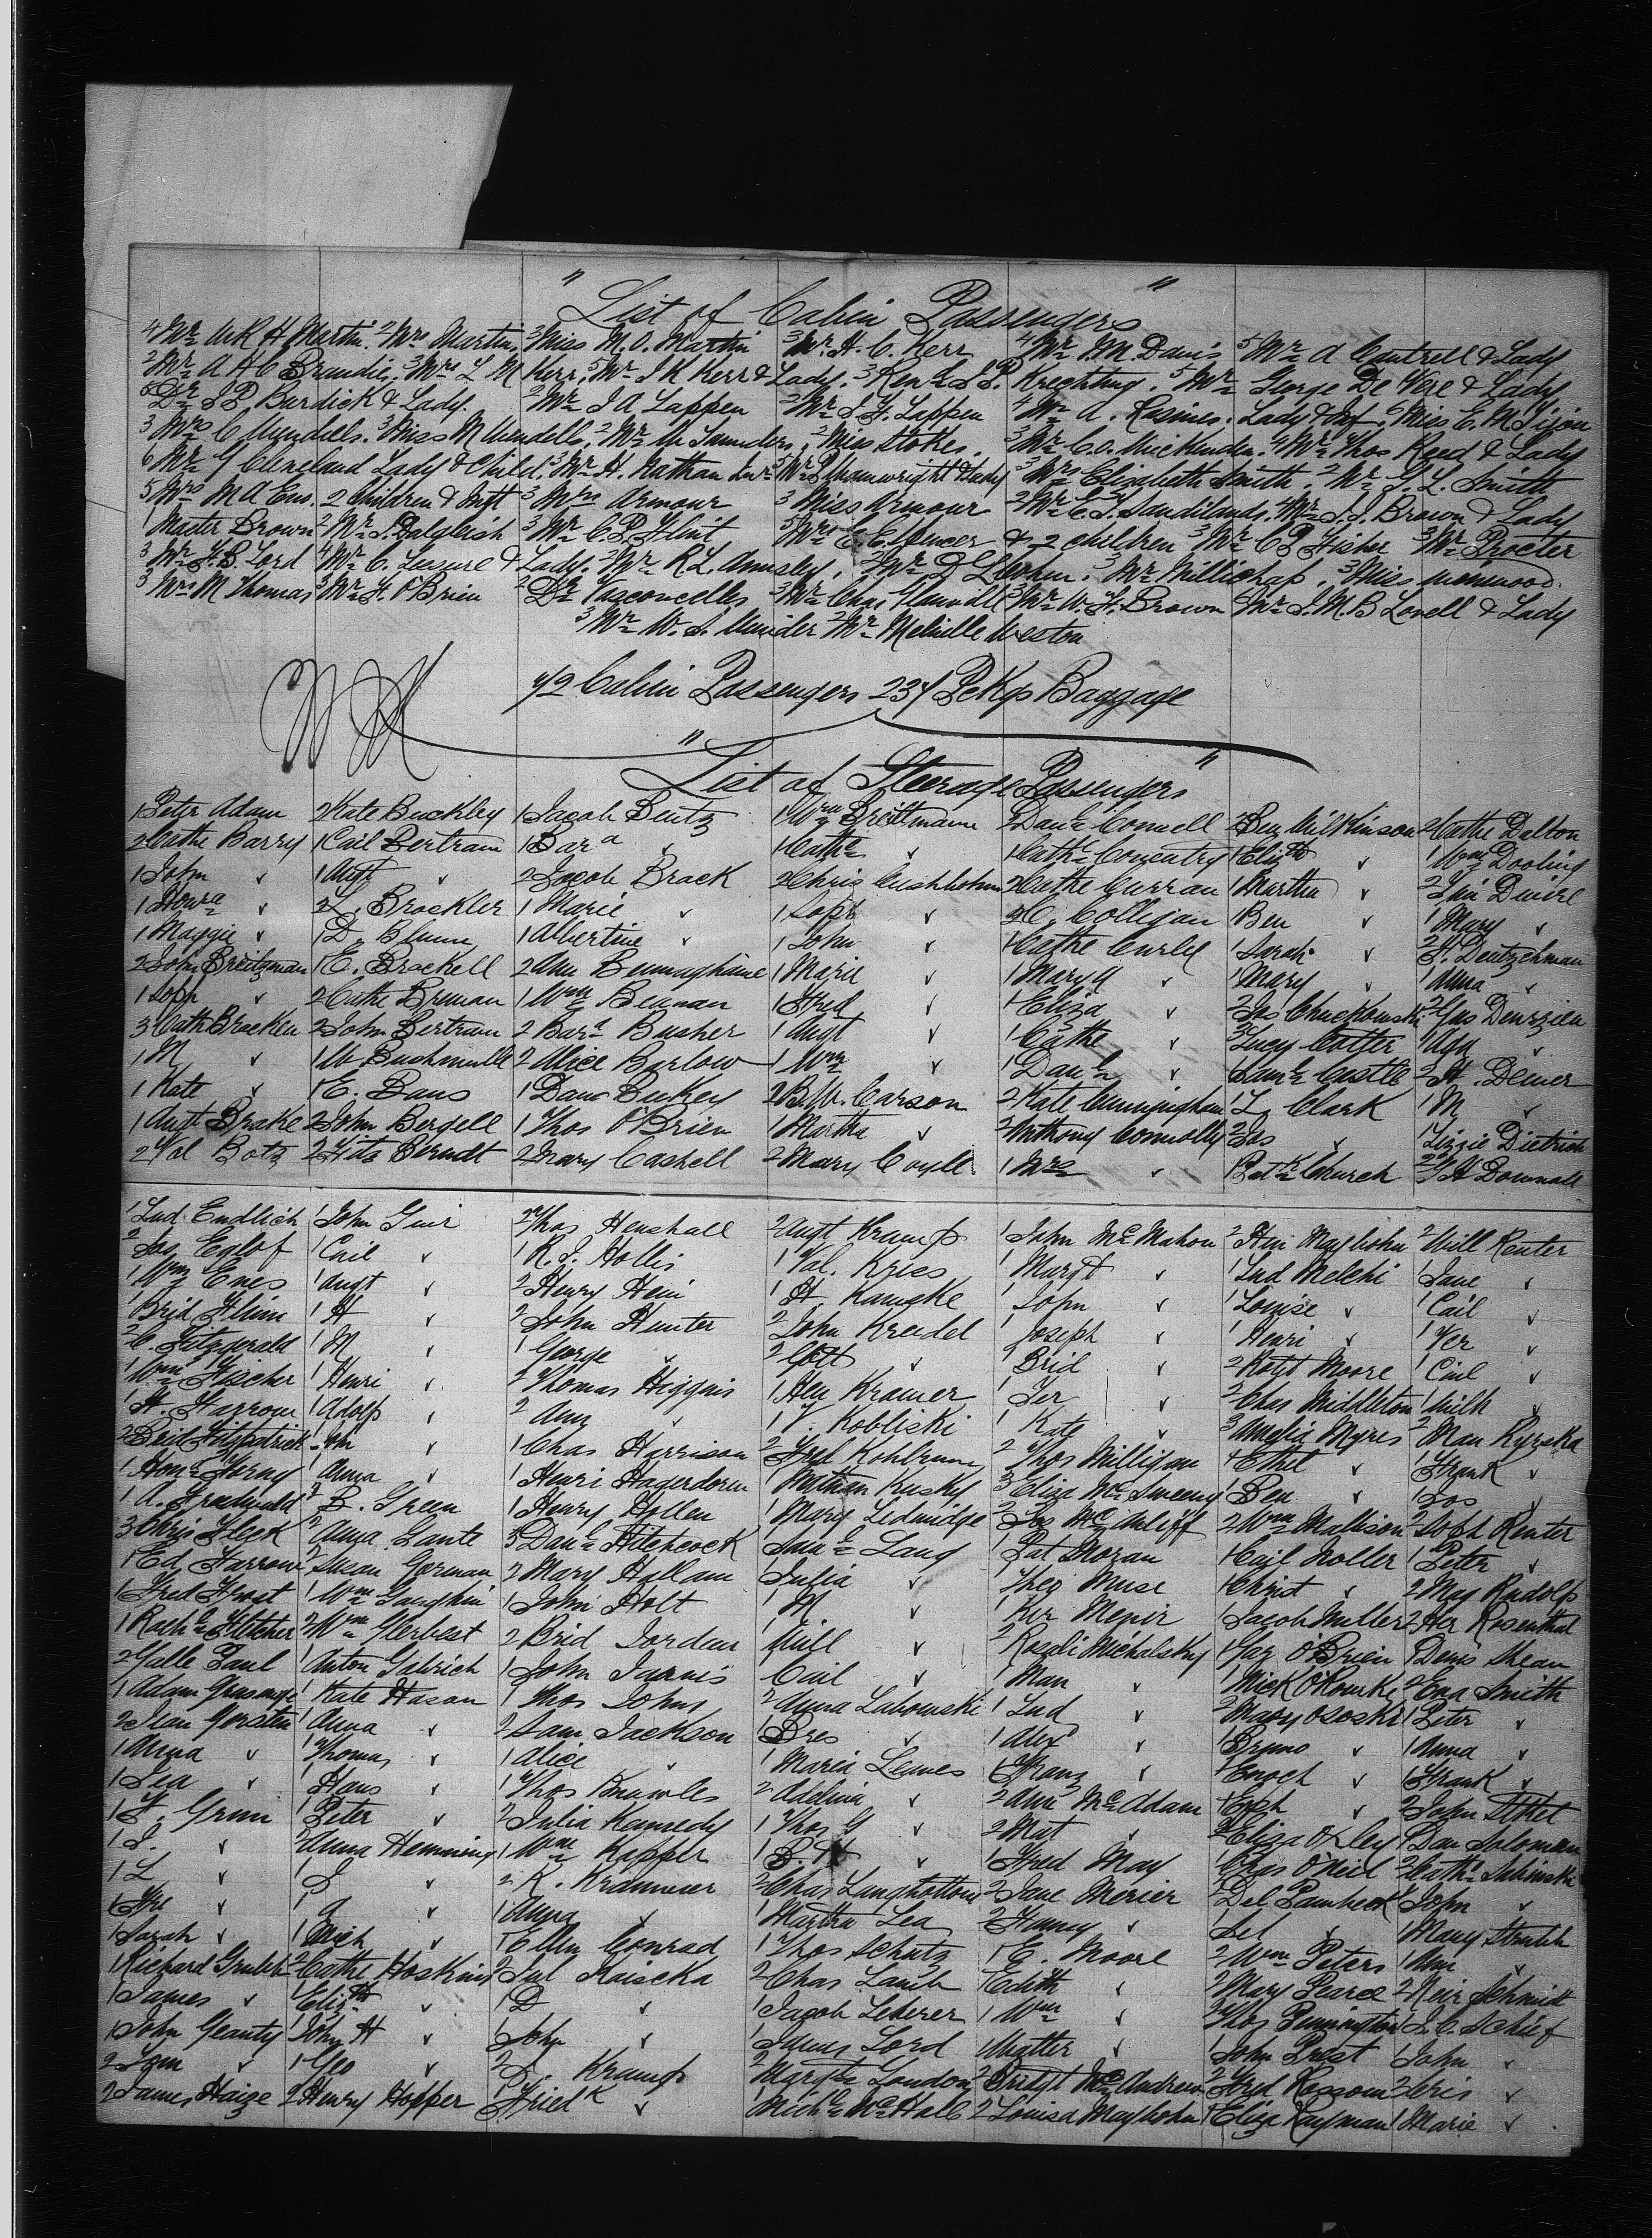 " List of Cabin Passengers "
4 Mr W R H Martin. 2 Mrs Martin, 3 Miss M. O. Martin 3 Mr. H. C. Kerr 4 Mr H M Davis 5 Mr A Cantrell & Lady
2 Mr A H C Brandie, 3 Mrs L M Kerr, 5 Mr J K Kerr & Lady. 3 J. P. Krechting. 5 Mr George De Vere & Lady
5 Dr J P Burdick & Lady. 2 Mr J A Lappen 2 Mr J. F. Lappen 4 Mr A. Lady & Inf. 6 Miss E. M
3 Mrs C 3 Miss M 2 Mr W Saunders, 2 Miss Stokes. 3 Mr C. O. 4 Mr Thos Reed & Lady
6 Mr G Cleveland Lady & Child. 3 Mr H. Nathan 5 Mr & Lady 3 Mrs Elizabeth Smith. 2 Mr F. L. Smith
5 Mrs M A 2 Children & Inft 3 Mrs Armour 3 Miss Armour 2 Mr C. J. Sandilands. 4 Mr J. J. Brown & Lady
1 Master Brown 2 Mr J. Dalgleish 3 Mr C. P. Flint 5 Mrs C. C. Spencer & 2 children 3 Mr C P Fisher 3 Mr Procter
3 Mr F. B. Lord 4 Mr C. & Lady. 2 Mr R. L. Annsley. 3 Mr D 3 Mr Millichap. 3 Miss Winwood.
3 Mrs M Thomas 3 Mr F. O'Brien 2 Dr Vasconcelles 3 Mr Chas Glanvill 3 Mr W. F. Brown 6 Mr J. M. B Lovell & Lady
3 Mr W. S. 2 Mr Melville Weston
72 Cabin Passengers 237 Pckgs Baggage
" List of Steerage Passengers "
1 Peter Adam 2 Kate Buckley 1 Jacob Beutz 1 Wm Breitmann 2 Danl Connell 2 Ben Wilkinson 2 Cathe Dalton
2 Cathe Barry 1 Cail Bertram 1 Bara " 1 Cathe " 1 Cathe Coventry 1 Elizth " 1 Wm Dooling
1 John " 1 Augt " 2 Jacob Brack 2 Chris 2 Cathe Curran 1 Martha "
1 Howra " 2 L. Brockler 1 Marie " 1 Soph " 2 C. Colligan 1 Ben " 1 Mary "
1 Maggie " 1 D. Blum 1 Albertine " 1 John " 1 Cathe Curley 1 Sarah " 2 F. Deutzchman
2 John Breitzman 1 E. Brackell 2 Ann 1 Marie " 1 Mary A " 1 Mary " 1 Anna "
1 Soph " 2 Cathe Brenan 1 Wm Beanan 1 Fred " 1 Eliza " 2 Jos Chuckowski 2 Gus
3 Cath Bracken 2 John Bertram 2 Bara Busher 1 Augt " 1 Cathe " 3 Lucy Cotter 1 Aug "
1 M " 1 W. 2 Alice Barlow 1 Wm " 1 Danl " Saml Castle 2 H. Dewer
1 Kate " 1 E. Bans 1 Danl Buckey 2 B. W. Carson 2 Kate Cunningham 1 L. Clark 1 M "
1 Augt Brake 2 John Bergell 1 Thos O'Brien 1 Martha " 2 Anthony Connolly 2 Jas " 1 Lizzie Dietrich
2 Val Botz 2 Fitz Berndt 2 Mary Cashell 2 Mary Coyle 1 Mrs " 1 Patk Church 2 J H Downall
1 Lud Endlich 1 John Guir 2 Thos Henshall 2 Augt Kramp 1 John McMahon 2 Hen Maybohn 2 Will Renter
2 Jos Eglof 1 Cail " 1 R. J. Hollis 1 Val. Kriss 1 Margt " 1 Lud Melchi 1 Jane "
1 Wm Enes 1 Augt " 2 Henry Hein 1 H Kamgke 1 John " 1 Louise " 1 Cail "
1 Brid Flinn 1 H " 2 John Hunter 2 John Kreidel 1 Joseph " 1 Henri " 1 Ver "
2 C. Fitzgerald 1 M " 1 George " 2 Gott " 1 Brid " 2 Robt Moore 1 Cail "
1 Wm Fischer 1 Henri " 2 Thomas Higgins 1 Hen Kramer 1 Ter " 2 Chas Middleton 1 Wilh "
1 H. Farrow 1 Adolp " 2 Ann " 1 V. Kobliski 1 Kate " 3 Amelia Myres 2 Man Kyrska
2 Brid Fitzpatrick " 1 Chas Harrison 2 Fred Kohlrum 2 Thos Milligan 1 Ethel " 1 Frank "
1 Anna " 1 Henri Hagerdoren 1 Nathan Kusky 3 Eliza McSweeny 1 Ben " 1 Jos "
1 A. Friedwald 2 B. Green 1 Henry Hollen 1 Mary Ledmidge 2 Jos McAuliff 2 Wm Mallison 2 Soph Renter
3 Chris Fleck 2 Anna Gante 3 Danl Hitchcock 1 Saml Lang 1 Pat Moran 1 Cail Noller 1 Peter "
1 Ed Farrow 2 Susan Gorman 2 Mary Hallam 1 Julia " 1 Theo Muse 1 Christ " 2 May Rudolp
1 Fred Furst 1 Wm Gaughin 1 John Holt 1 M " 1 Ker Menir 1 Jacob Muller 2 Her Rosenthal
1 Rachl Fletcher 2 Wm Gerbest 2 Brid Jordan 1 Will " 2 Rosali Michalsky 1 Jas O'Brien 1 Denis Shean
2 Galle Paul 1 Anton Gabrich 1 John Jarvis 1 Cail " 1 Man " 1 Mick O'Rourke 2 Ena Smith
1 Adam 1 Kate Hason 1 Thos Johns 2 Anna Labowski 1 Lud " 2 Mary Ososki 1 Peter "
2 Jean Gersten 1 Anna " 2 Sam Jackson 1 Bres " 1 Alex " 1 Bruno " 1 Anna "
1 Anna " 1 Thomas " 1 Alice " 1 Maria Lewes 1 Franz " 1 Enoch " 1 Frank "
1 Lea " 1 Hans " 1 Thos Brawles 2 Adelina " 2 Ann McAdam 1 Eoph " 2 John Sthet
1 F. Grun 1 Peter " 2 Julia Kannedy 1 Thos G " 2 Mat " 2 Eliza Oxley 1 Dan Soloman
1 S. " 2 Anna Hemming 1 Wm Kapper 1 B. H " 1 Fred May 1 Chas O'Neil 2 Cathe
1 L " 1 S " 2 K. Krammer 2 Chas Langbottom 2 Jane Merier 2 Del Pambeck 1 John "
1 Fre " 1 J " 1 Anna " 1 Martha Lea 2 Fanny " 1 Lel " 1 Mary
1 Sarah " 1 Mich " 1 Ellen Conrad 1 Thos Schutz 1 E. Moore 2 Wm Peters 1 Ann "
1 Richard Grubb 2 Cathe Hoskins 2 Jul Kaiscka 2 Chas Lamb 1 Edith " 2 Mary Pearce 2 Heir Schmidt
1 James " 1 Elizth " 1 D " 1 Jacob Lederer 1 Wm " 2 Thos Pennington J. C. Schief
1 John Geanty 1 John H " 1 John " 1 James Lord 1 Walter " 1 John Prest 1 John "
2 " 1 Geo " 2 D. Kramp 2 Margt London 2 Bridgt McAndrew 2 Fred Rossom 2 Cris "
2 James Haize 2 Henry Hopper 1 Friedk " 1 Michl McHale 2 Louisa Maybohm 1 Eliza Rayman 1 Marie "